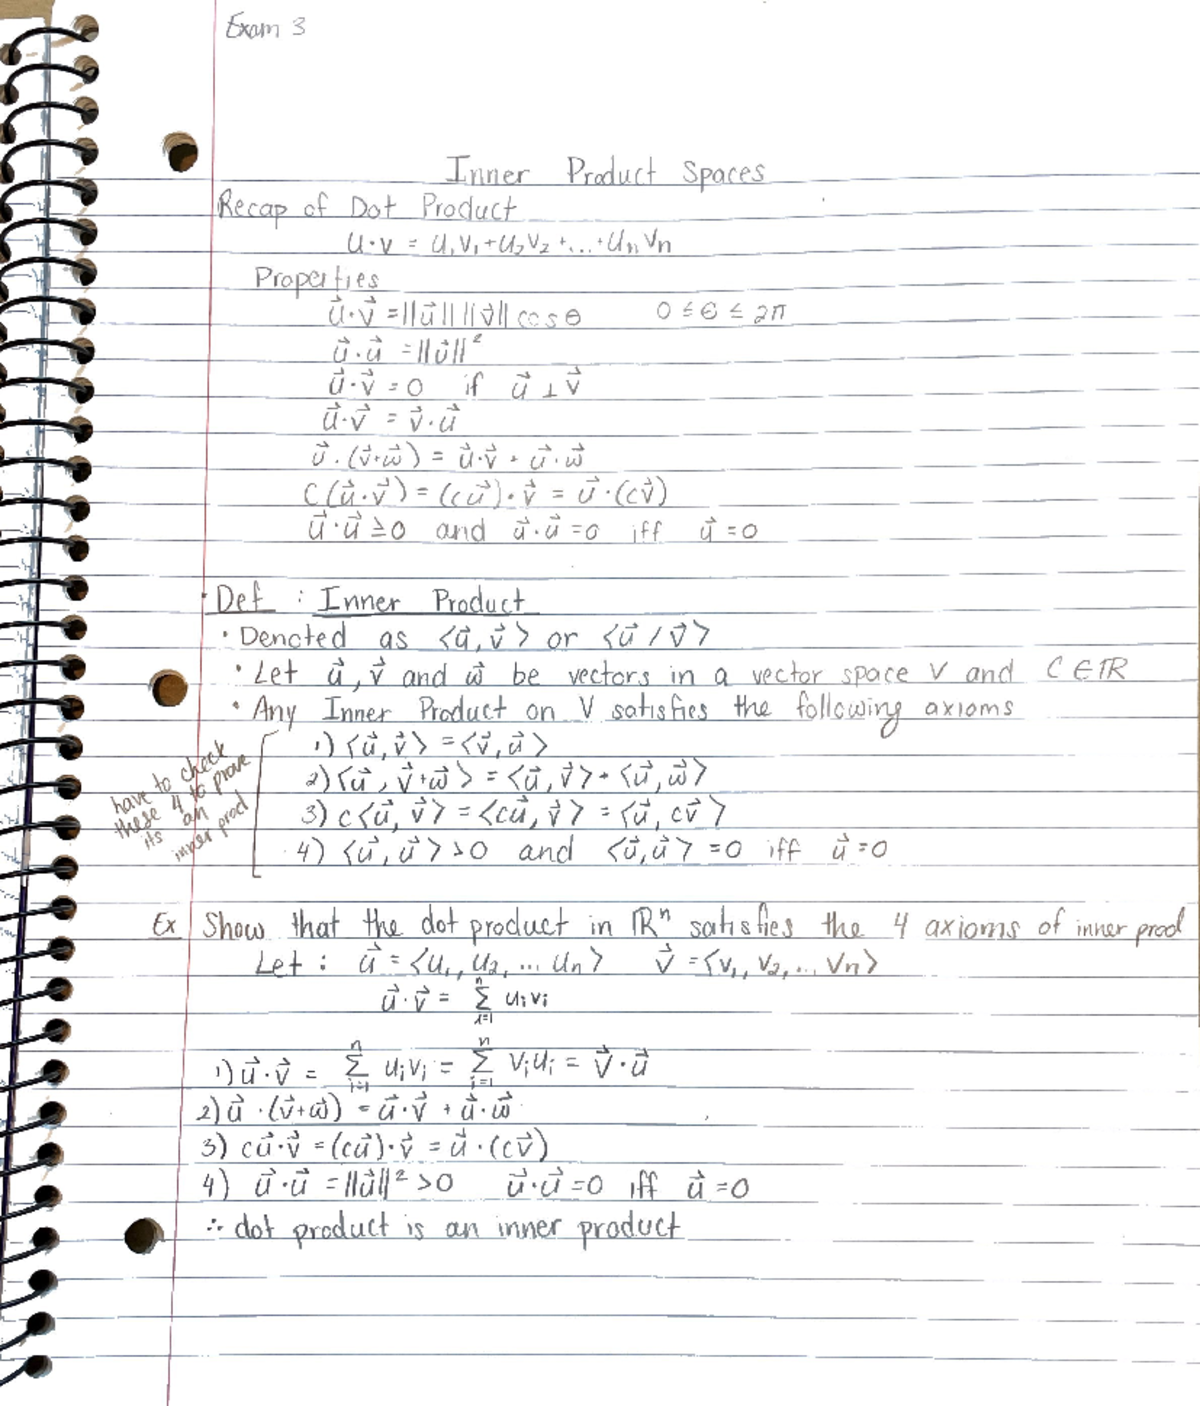 Exam 3
Inner Product Spaces
Recap of Dot Product
u·v = u₁v₁+u₂v₂+...+uₙvₙ
Properties
u⃗·v⃗ = ||u⃗|| ||v⃗|| cos θ 0 ≤ θ ≤ 2π
u⃗·u⃗ = ||u⃗||²
u⃗·v⃗ = 0 if u⃗ ⊥ v⃗
u⃗·v⃗ = v⃗·u⃗
u⃗·(v⃗+w⃗) = u⃗·v⃗ + u⃗·w⃗
c(u⃗·v⃗) = (cu⃗)·v⃗ = u⃗·(cv⃗)
u⃗·u⃗ ≥ 0 and u⃗·u⃗ = 0 iff u⃗ = 0
· Def : Inner Product
· Denoted as <u⃗, v⃗> or <u⃗ / v⃗>
· Let u⃗, v⃗ and w⃗ be vectors in a vector space V and C ∈ ℝ
· Any Inner Product on V satisfies the following axioms
1) <u⃗, v⃗> = <v⃗, u⃗>
2) <u⃗, v⃗+w⃗> = <u⃗, v⃗> + <u⃗, w⃗>
3) c<u⃗, v⃗> = <cu⃗, v⃗> = <u⃗, cv⃗>
4) <u⃗, u⃗> > 0 and <u⃗, u⃗> = 0 iff u⃗ = 0
have to check
these 4 to prove
its an
inner prod
Ex Show that the dot product in ℝⁿ satisfies the 4 axioms of inner prod
Let : u⃗ = <u₁, u₂, ... uₙ> v⃗ = <v₁, v₂, ... vₙ>
u⃗·v⃗ = Σⁿᵢ₌₁ uᵢvᵢ
1) u⃗·v⃗ = Σⁿᵢ₌₁ uᵢvᵢ = Σⁿᵢ₌₁ vᵢuᵢ = v⃗·u⃗
2) u⃗·(v⃗+w⃗) = u⃗·v⃗ + u⃗·w⃗
3) cu⃗·v⃗ = (cu⃗)·v⃗ = u⃗·(cv⃗)
4) u⃗·u⃗ = ||u⃗||² > 0 u⃗·u⃗ = 0 iff u⃗ = 0
∴ dot product is an inner product